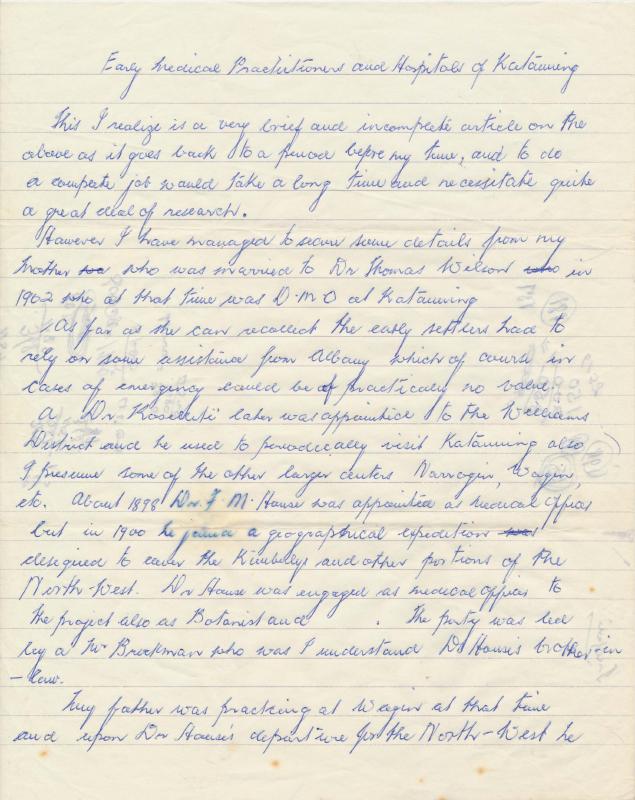 Early Medical Practitioners and Hospitals of Katanning
This I realize is a very brief and incomplete article on the
above as it goes back to a period before my time, and to do
a complete job would take a long time and necessitate quite
a great deal of research.
However I have managed to secure some details from my
mother who was married to Dr Thomas Wilson in
1902 who at that time was D.M.O at Katanning
As far as she can recollect the early settlers had to
rely on some assistance from Albany which of course in
cases of emergency could be of practically no value.
A Dr. later was appointed to the Williams
District and he used to periodically visit Katanning also
I presume some of the other larger centers Narrogin, Wagin,
etc. About 1898 Dr. F. M. House was appointed as medical officer
but in 1900 he joined a geographical expedition
designed to cover the Kimberlys and other portions of the
North-West. Dr House was engaged as medical officer to
the project also as Botanist and . The party was led
by a Mr Brockman who was I understand Dr House's brother-in
-law.
My father was practicing at Wagin at that time
and upon Dr House's departure for the North-West he